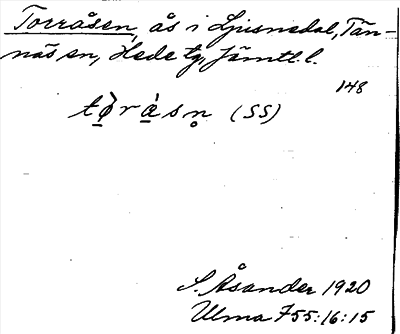 Torråsen, ås i Ljusnedal, Tän-
näs sn, Hede tg, Jämtl. l.
148
tø̠̀rà̠sn̥ (SS)
S. Åsander 1920
Ulma 755:16:15